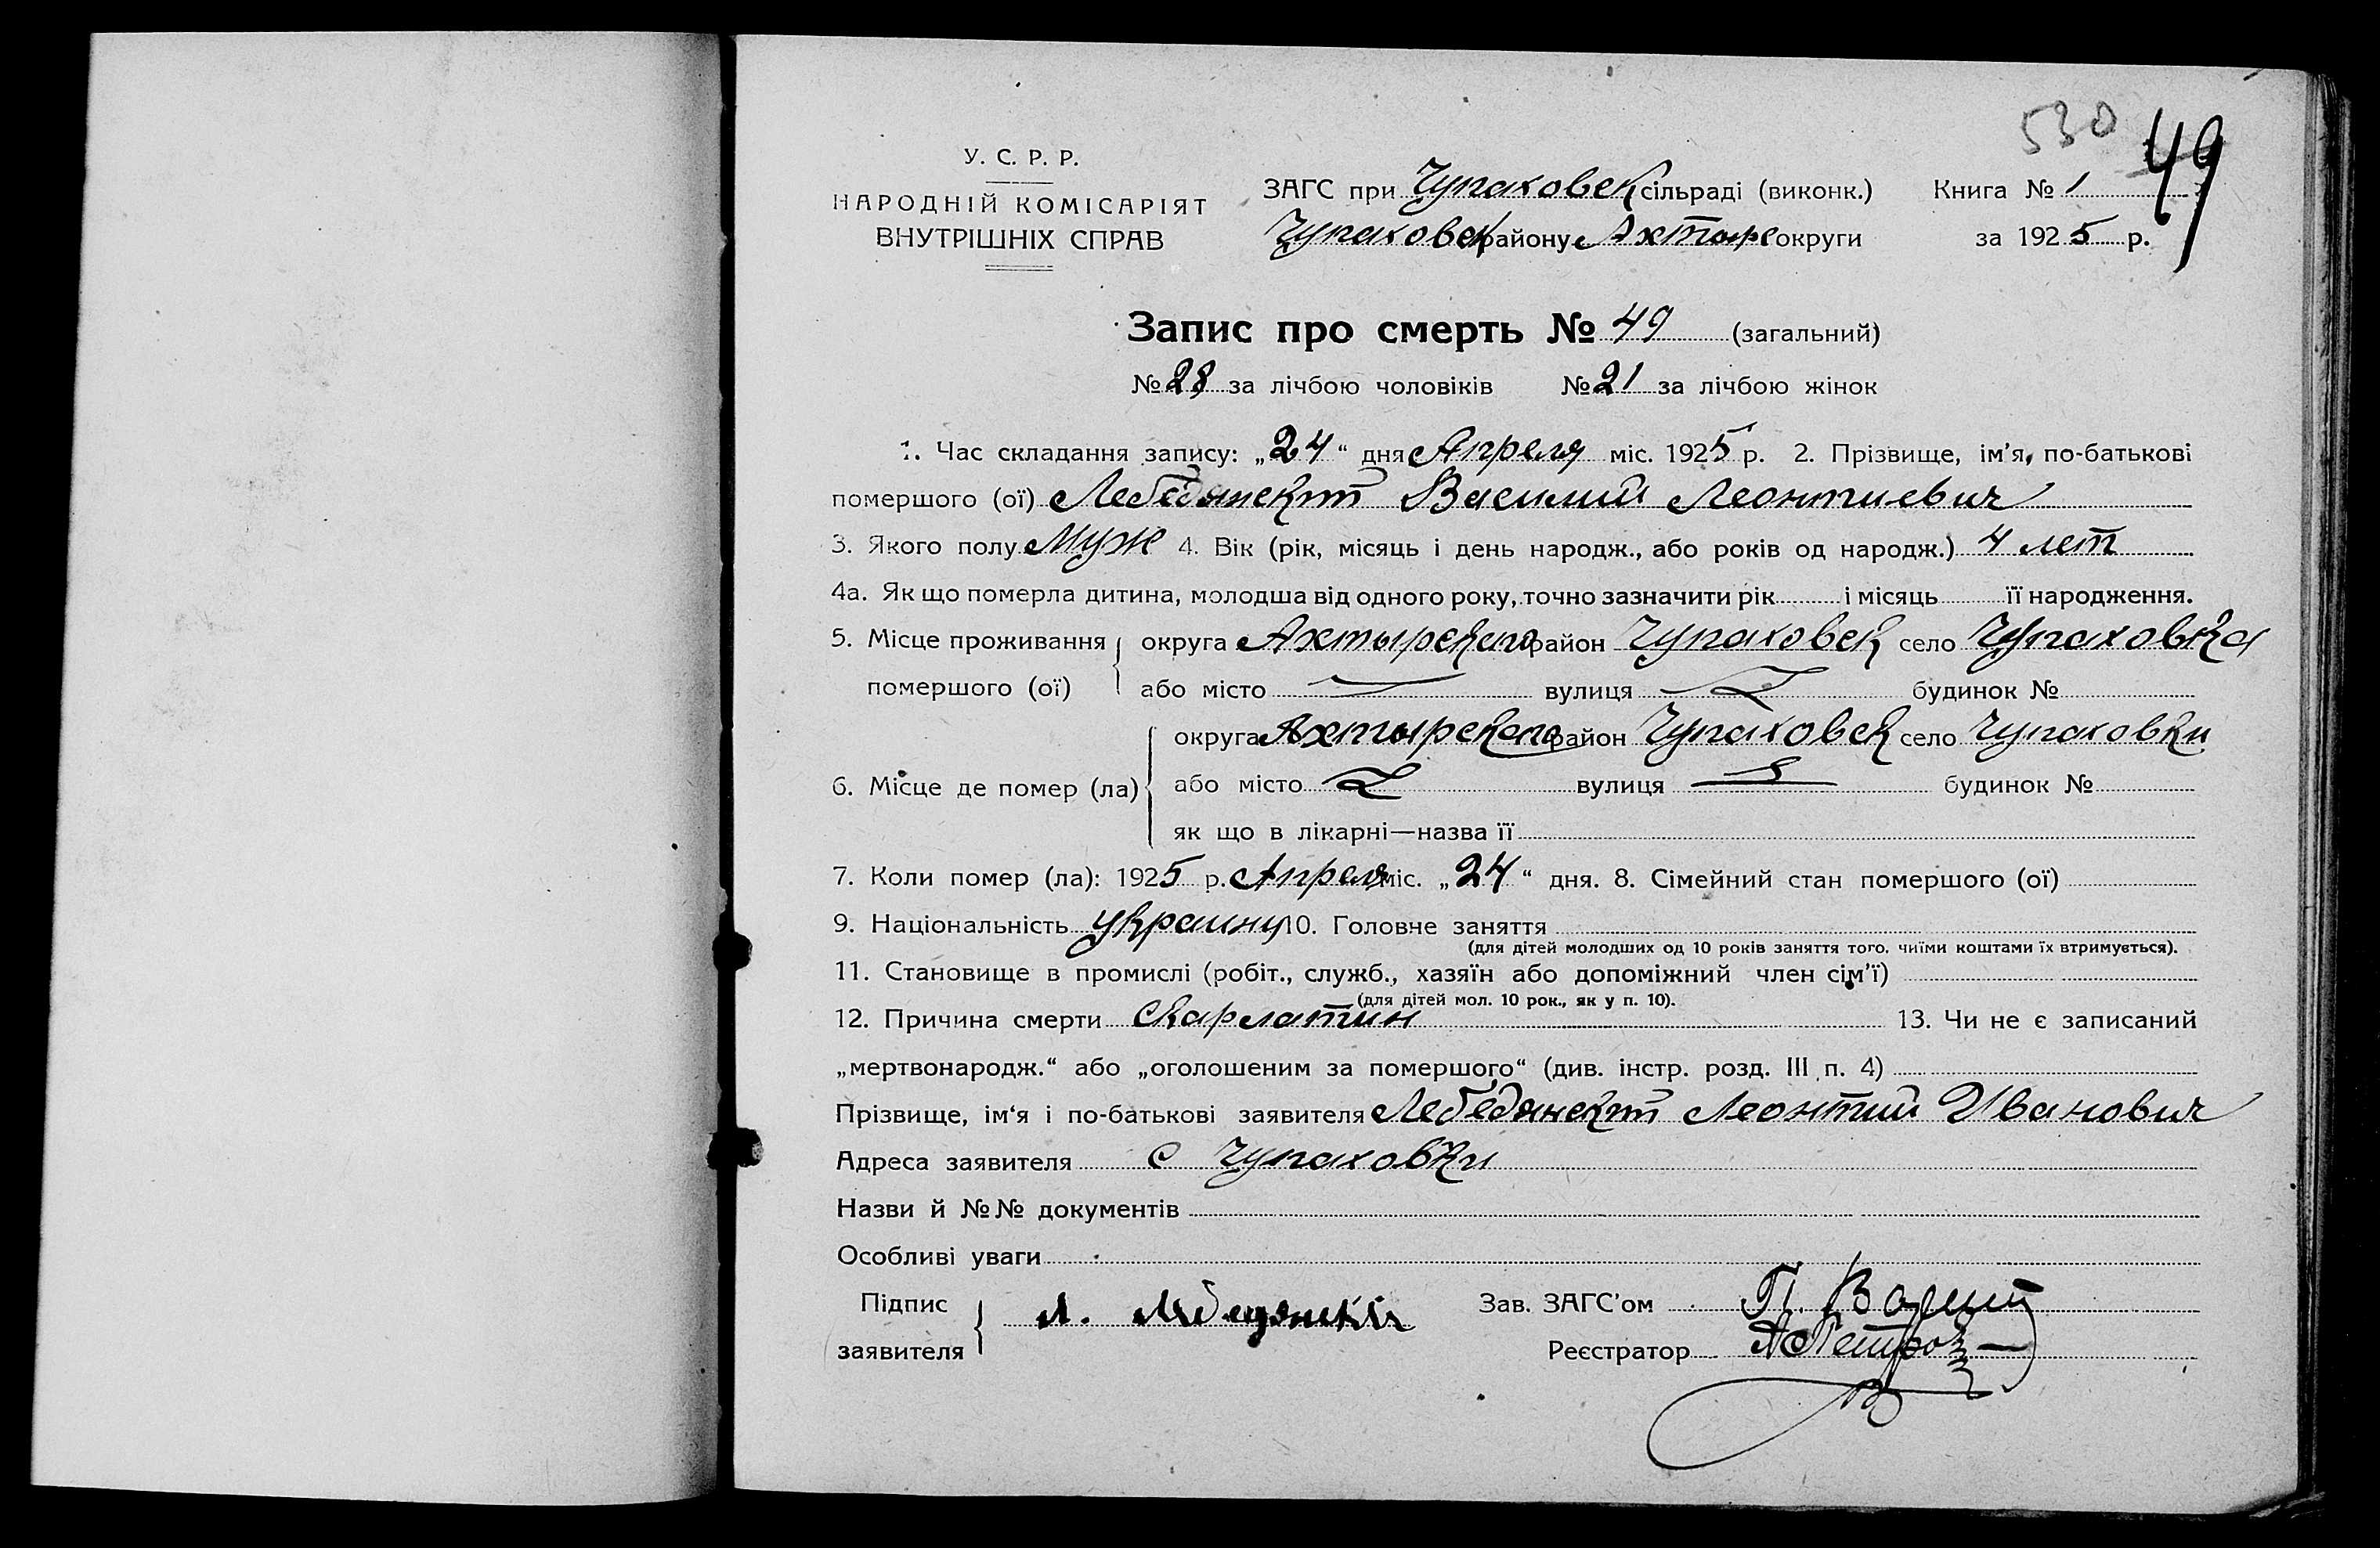 530 49
У. С. Р. Р.
НАРОДНІЙ КОМІСАРІЯТ
ВНУТРІШНІХ СПРАВ
ЗАГС при Чупаховск сільраді (виконк.) Книга № 1
Чупаховск району Ахтырс округи за 1925 р.
Запис про смерть № 49 (загальний)
№ 28 за лічбою чоловіків № 21 за лічбою жінок
1. Час складання запису: „24“ дня Апреля міс. 1925 р. 2. Прізвище, ім'я, по-батькові
помершого (ої) Лебедянскт Василий Леонтиевич
3. Якого полу Муж 4. Вік (рік, місяць і день народж., або років од народж.) 4 лет
4а. Як що померла дитина, молодша від одного року, точно зазначити рік і місяць її народження.
5. Місце проживання округа Ахтырского район Чупаховск село Чупаховка
помершого (ої) або місто вулиця будинок №
округа Ахтырского район Чупаховск село Чупаховки
6. Місце де помер (ла) або місто вулиця будинок №
як що в лікарні—назва її
7. Коли помер (ла): 1925 р. Апреля міс. „24“ дня. 8. Сімейний стан помершого (ої)
9. Національність украинц 10. Головне заняття
(для дітей молодших од 10 років заняття того, чиїми коштами їх втримується).
11. Становище в промислі (робіт., служб., хазяїн або допоміжний член сім'ї)
(для дітей мол. 10 рок., як у п. 10).
12. Причина смерти Скарлатин 13. Чи не є записаний
„мертвонародж.“ або „оголошеним за помершого“ (див. інстр. розд. III п. 4)
Прізвище, ім'я і по-батькові заявителя Лебедянскт Леонтий Иванович
Адреса заявителя с Чупаховки
Назви й №№ документів
Особливі уваги
Підпис заявителя Л. Лебедянскій
Зав. ЗАГС'ом П.
Реєстратор